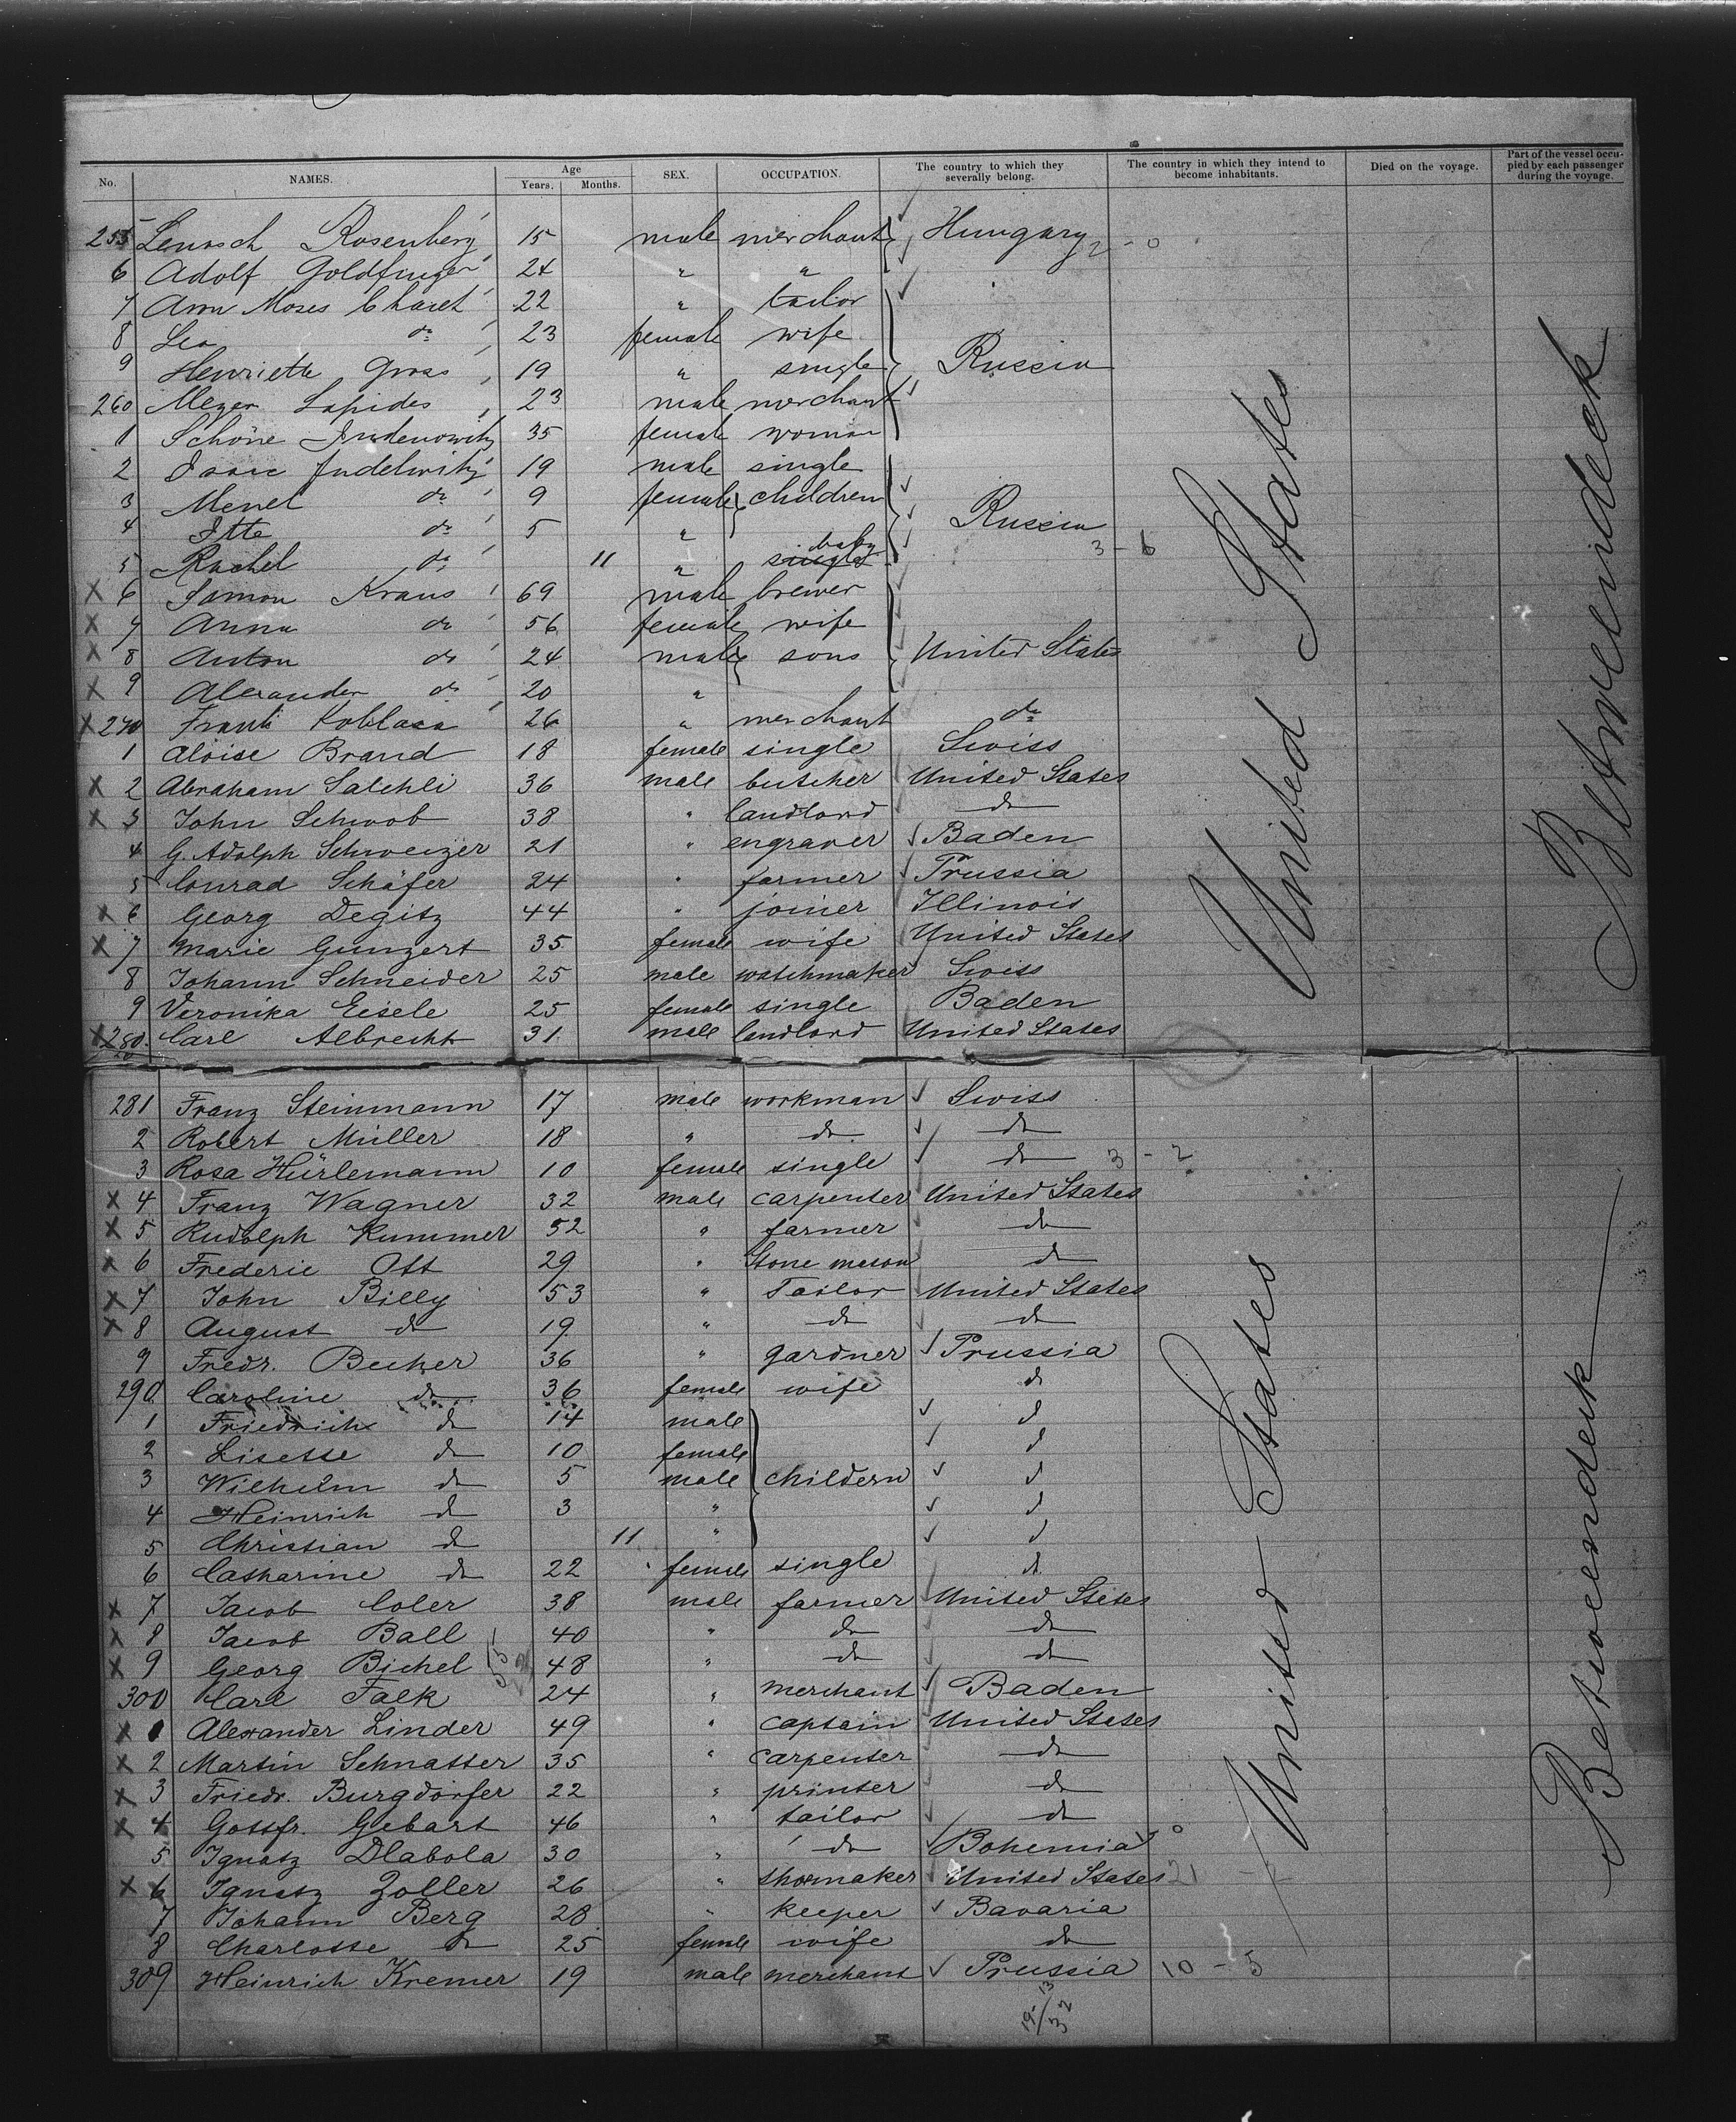 No. NAMES. Age Years. Months. SEX. OCCUPATION. The country to which they severally belong. The country in which they intend to become inhabitants. Died on the voyage. Part of the vessel occupied by each passenger during the voyage.
255 Lenosch Rosenberg 15 male merchant Hungary 2 - 0
6 Adolf Goldfinger 24 " "
7 Aron Moses Charet 22 " tailor
8 Lea do 23 female wife
9 Henriette Gross 19 " single Russia
260 Meyer Lapides 23 male merchant
1 Schöne Judenowitz 35 female woman
2 Isaac Judelwitz 19 male single
3 Menel do 9 female children
4 Itte do 5 " Russia
5 Rachel do 11 " single baby 3 - 6
X 6 Samon Kraus 69 male brewer
X 7 Anna do 56 female wife
X 8 Anton do 24 male sons United States
X 9 Alexander do 20 "
X 270 Frank Koblasa 26 " merchant do
1 Aloise Brand 18 female single Swiss
X 2 Abraham Salchli 36 male butcher United States
X 3 John Schwob 38 " landlord do
4 G. Adolph Schweizer 21 " engraver Baden
5 Conrad Schäfer 24 " farmer Prussia
X 6 Georg Degitz 44 " joiner Illinois
X 7 Marie Gunzert 35 female wife United States
8 Johann Schneider 25 male watchmaker Swiss
9 Veronika Eisele 25 female single Baden
X 280. Carl Albrecht 31. male landlord United States
20
United States
Betweendeck
281 Franz Steinmann 17 male workman Swiss
2 Robert Müller 18 " do do
3 Rosa Hürlemann 10 female single do 3 - 2
X 4 Franz Wagner 32 male carpenter United States
X 5 Rudolph Kummer 52 " farmer do
X 6 Frederic Ott 29 " Stone meson do
X 7 John Billy 53 " Tailor United States
X 8 August do 19 " do do
9 Fredr. Becker 36 " gardner Prussia
290 Caroline do 36 female wife do
1 Friedrich do 14 male do
2 Lisette do 10 female do
3 Wilhelm do 5 male childern do
4 Heinrich do 3 " do
5 Christian do 11 " do
6 Catharine do 22 female single do
X 7 Jacob Coler 38 male farmer United States
X 8 Jacob Ball 40 " do do
X 9 Georg Bichel 48 " do do
300 Carl Falk 24 " merchant Baden
X 1 Alexander Linder 49 " captain United States
X 2 Martin Schnatter 35 " carpenter do
X 3 Friedr. Burgdorfer 22 " printer do
X 4 Gottfr. Gebart 46 " tailor do
5 Ignatz Dlabola 30 " do Bohemia
X 6 Ignatz Zoller 26 " shoemaker United States 21
7 Johann Berg 28 " keeper Bavaria
8 Charlotte do 25 female wife do
309 Heinrich Kremer 19 male merchant Prussia 10 - 5
19 - 13
32
United States
Betweendeck